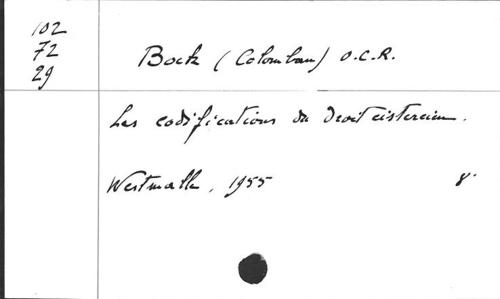 102
72
29
Bock (Colomban) O.C.R.
Les codifications du Droit cistercien.
Westmalle, 1955 8°